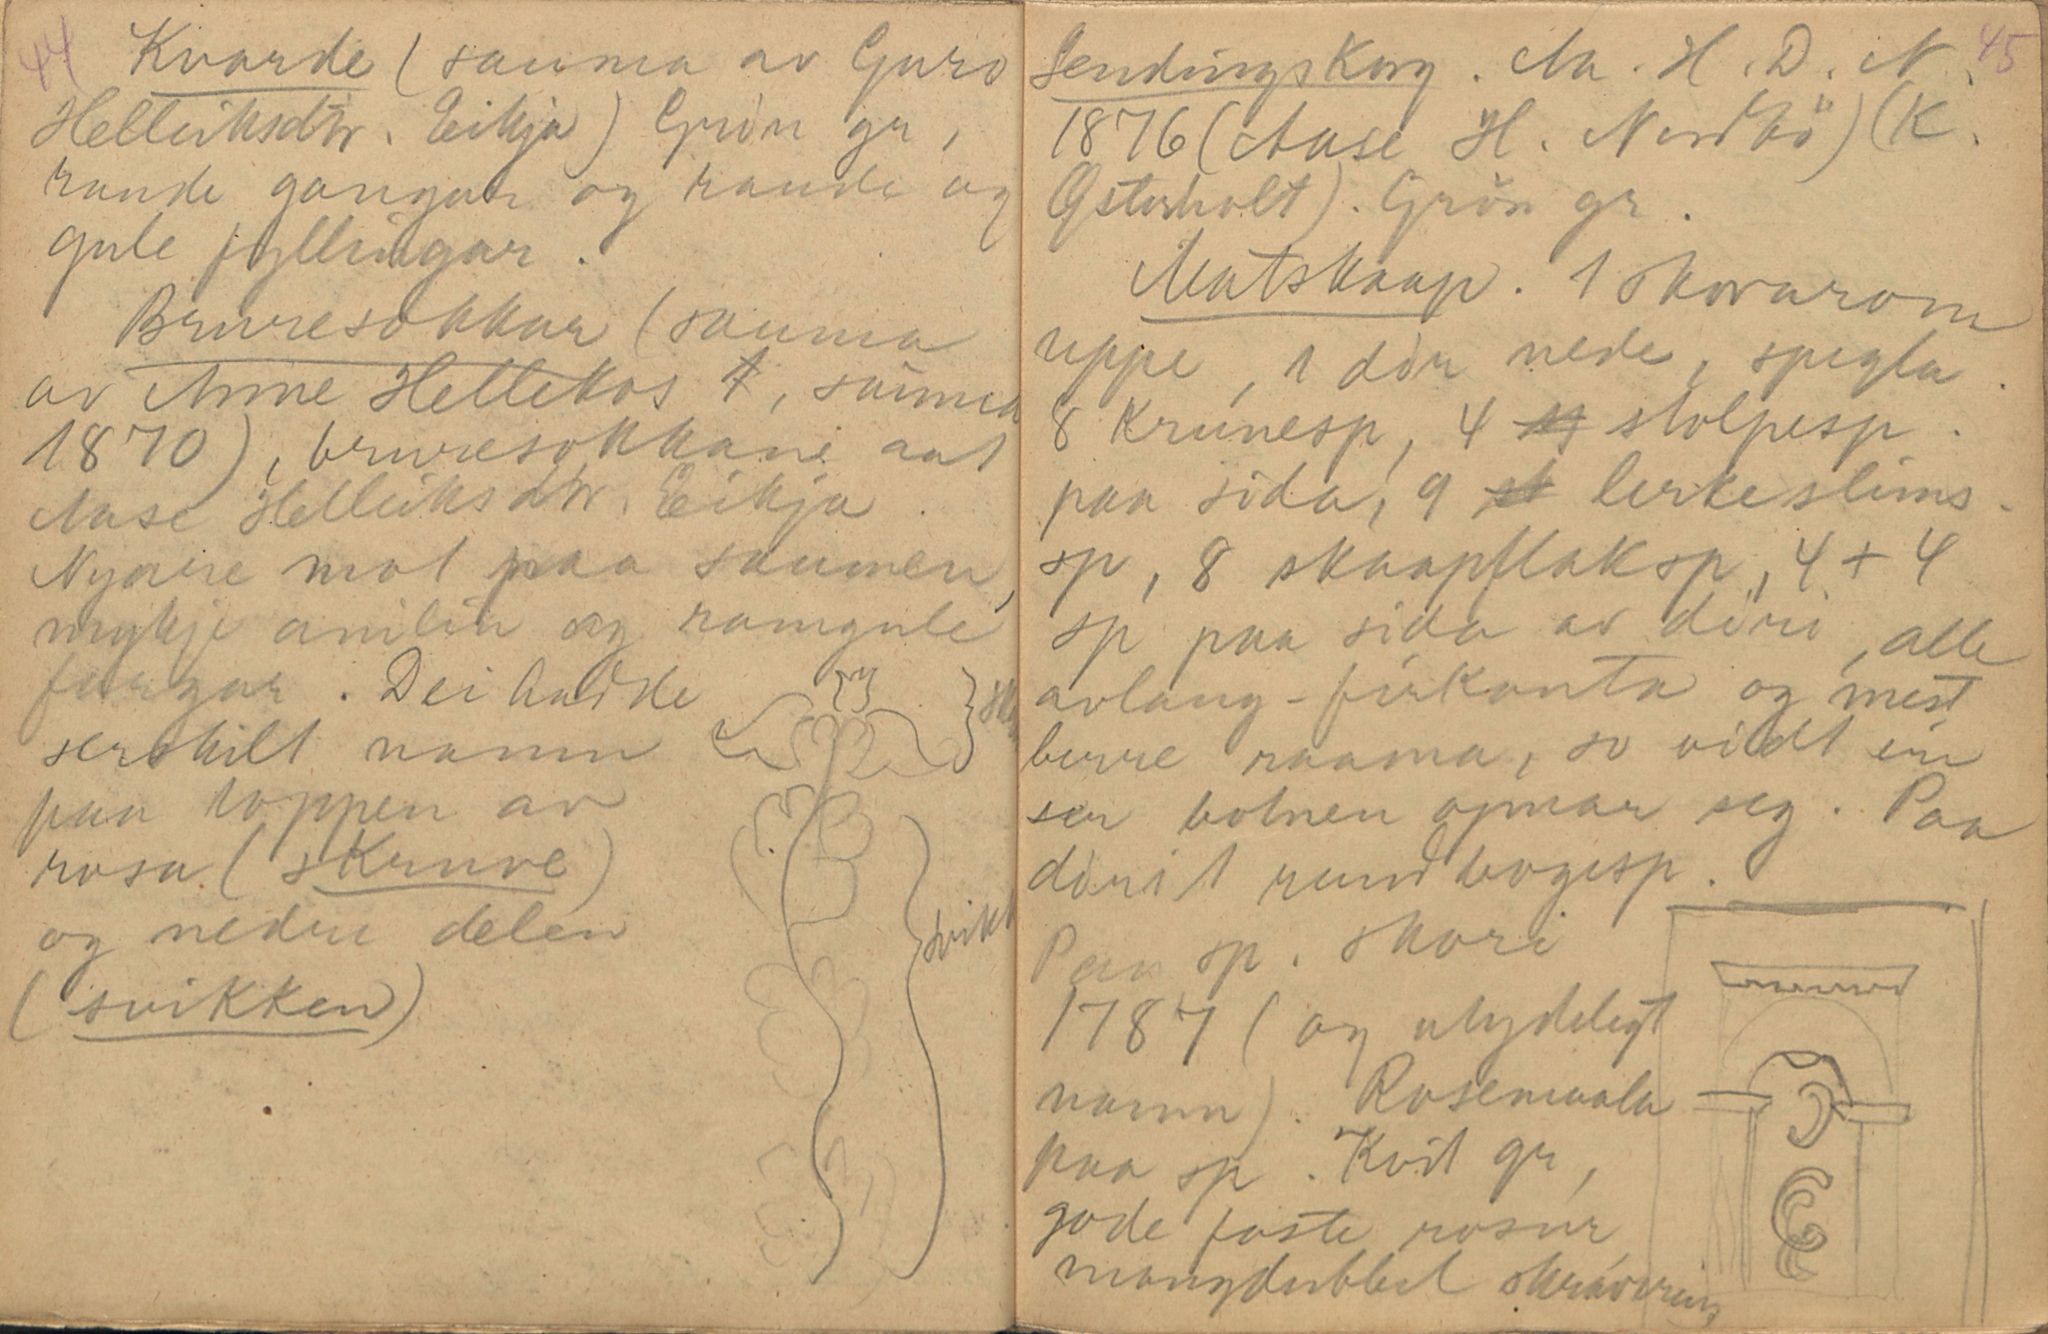 44
Kvarde (sauma av Guro
Helleiksdtr. Eikja) Grön gr,
raude gangar og raude og
gule fyllingar.
Bruresokkar (sauma
av Anne Hellekås, sauma
1870), bruresokkane aat
Aase Helleiksdtr. Eikja.
Nyarre mot paa saumen,
mykje anilin og ramgule
fargar. Dei hadde
serskilt namn
paa toppen av
rosa (skruve)
og nedre delen
(svikken)
svikk
45
Sendingskorg. Aa. H. D. N.
1876 (Aase H. Nordbö) (K.
Østerholt). Grön gr.
Matskaap. 1 skovarom
uppe, 1 dör nede, spegla.
8 krunesp, 4 stolpesp.
paa sida, 9 lerkeslims-
sp, 8 skaapflaksp, 4 + 4
sp paa sida av döri, alle
avlang-firkanta og mest
berre raama, so vidt ein
ser botnen opnar seg. Paa
döri 1 rundbogesp.
Paa sp. skori
1787 (og utydelegt
namn). Rosemaala
paa sp. Kvit gr,
gode faste rosur,
mangdubbel skravering